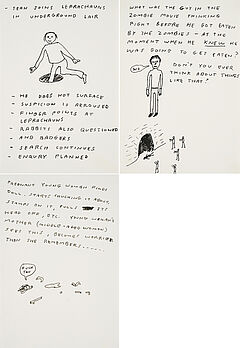 - SEAN JOINS LEPRACHAUNS
IN UNDERGROUND LAIR
- HE DOES NOT SURFACE
- SUSPICION IS AROUSED
- FINGER POINTS AT
LEPRACHAUNS
- RABBITS ALSO QUESTIONED
- AND BADGERS
- SEARCH CONTINUES
- ENQUIRY PLANNED
WHAT WAS THE GUY IN THE
ZOMBIE MOVIE THINKING
RIGHT BEFORE HE GOT EATEN
BY THE ZOMBIES - AT THE
MOMENT WHEN HE KNEW HE
WAS GOING TO GET EATEN?
DON'T YOU EVER
THINK ABOUT THINGS
LIKE THAT?
PREGNANT YOUNG WOMAN FINDS
DOLL. STARTS THROWING IT ABOUT,
STAMPS ON IT, PULLS ITS
HEAD OFF, ETC. YOUNG WOMAN'S
MOTHER (MIDDLE-AGED WOMAN)
SEES THIS, BECOMES WORRIED
THEN SHE REMEMBERS......